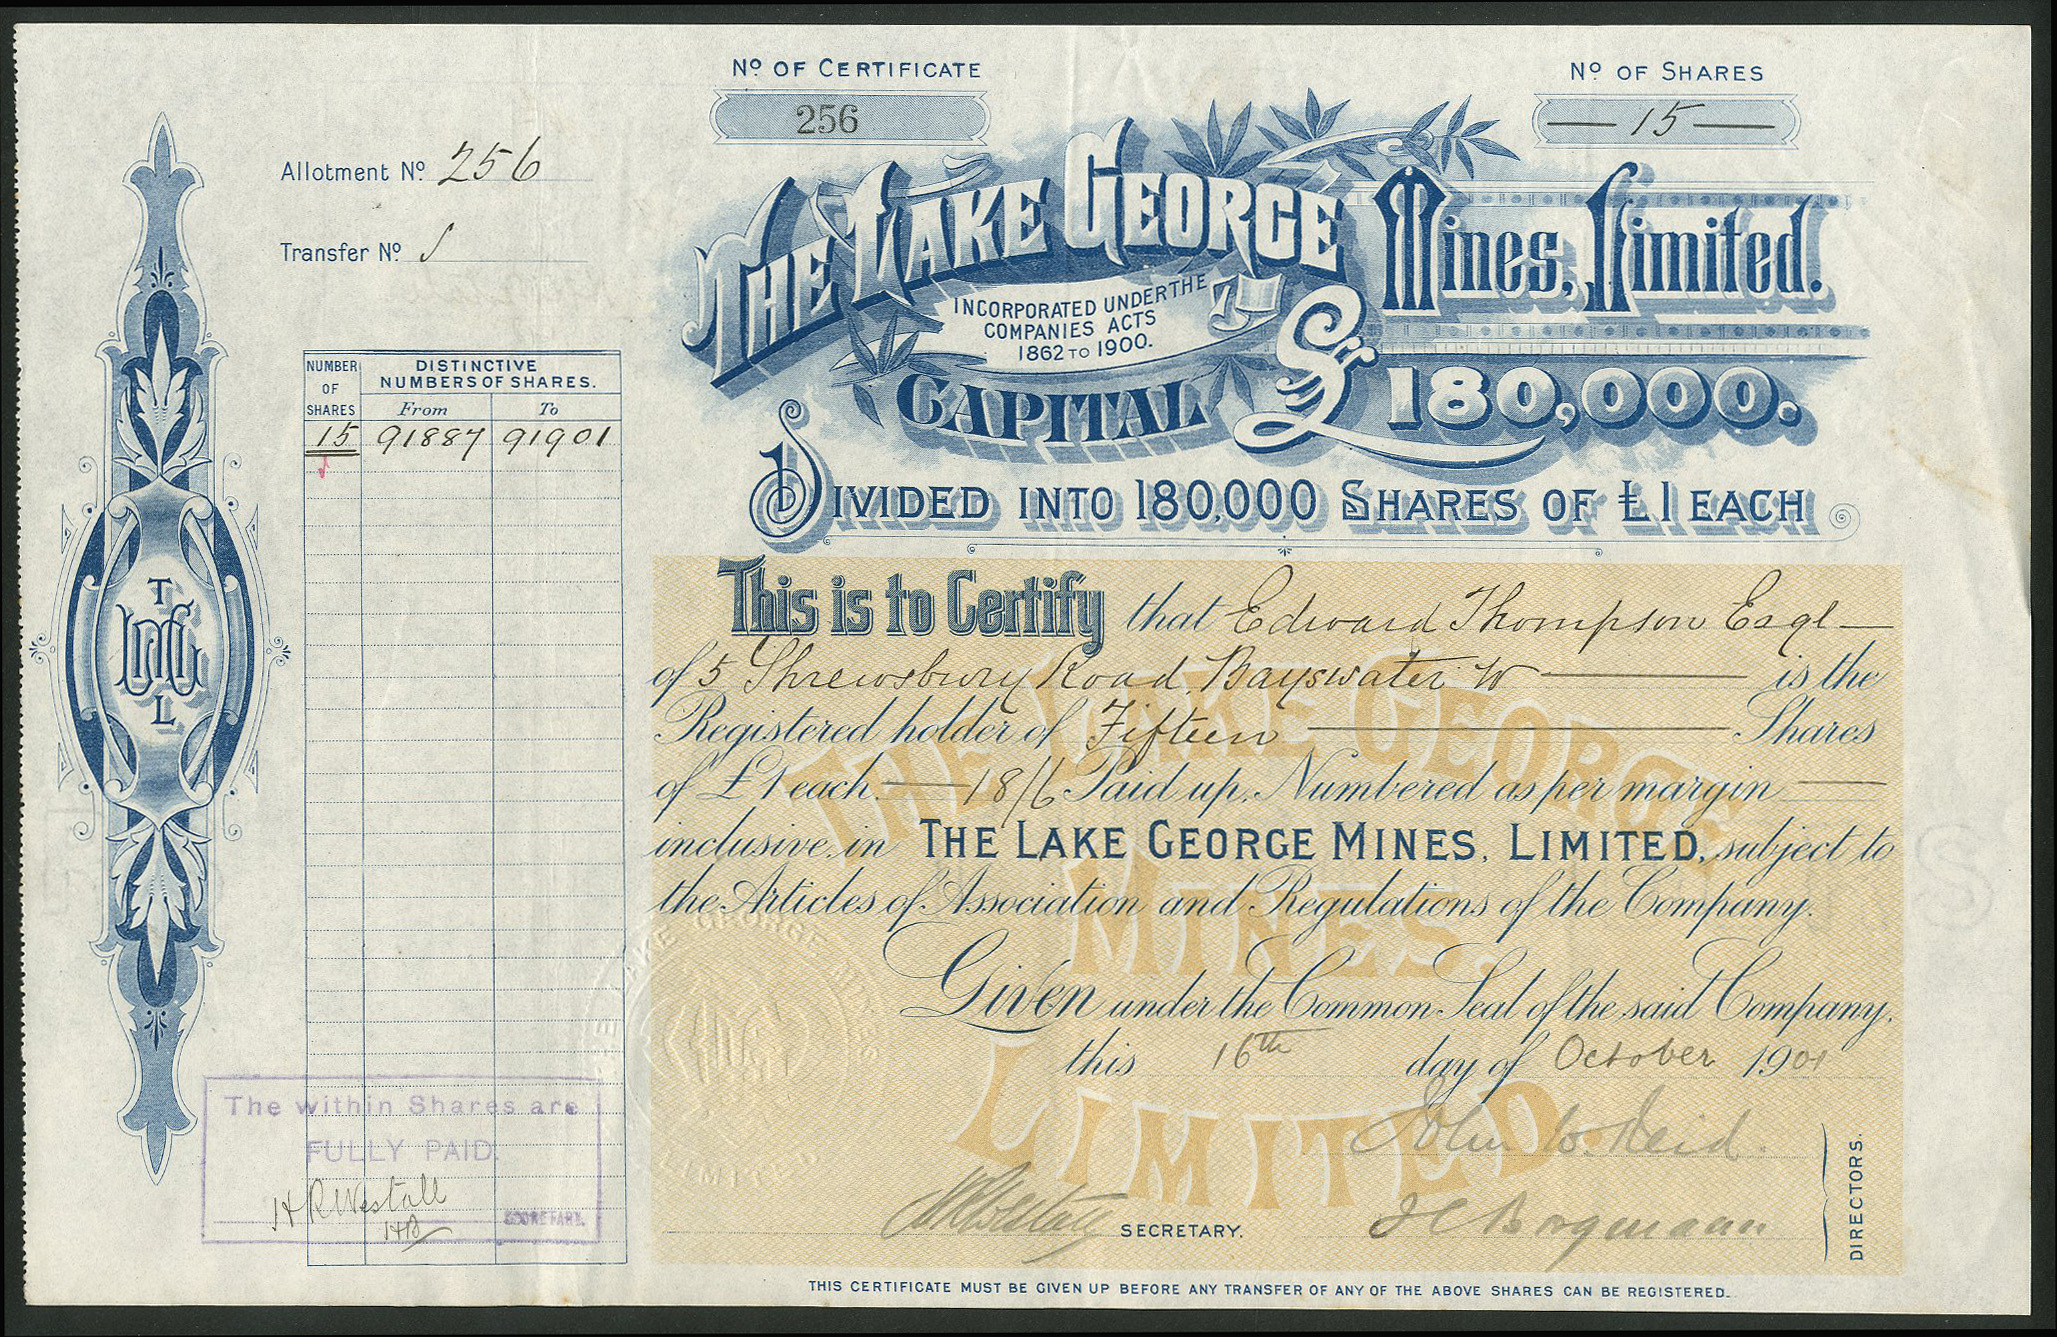 Nº OF CERTIFICATE
256
Nº OF SHARES
15
Allotment Nº 256
Transfer Nº
THE LAKE GEORGE Mines, Limited.
INCORPORATED UNDER THE
COMPANIES ACTS
1862 TO 1900.
CAPITAL £180,000.
DIVIDED INTO 180,000 SHARES OF £1 EACH
NUMBER OF SHARES
DISTINCTIVE NUMBERS OF SHARES.
From To
15 91887 91901
T
LMG
L
This is to Certify that Edward Thompson Esqr
of 5 Shrewsbury Road, Bayswater W is the
Registered holder of Fifteen Shares
of £1 each 18/6 Paid up, Numbered as per margin
inclusive, in THE LAKE GEORGE MINES, LIMITED, subject to
the Articles of Association and Regulations of the Company.
Given under the Common Seal of the said Company,
this 16th day of October 1901
THE LAKE GEORGE
MINES.
LIMITED
LAKE GEORGE
LIMITED
The within Shares are
FULLY PAID.
H R Westall
HB
SECRETARY.
John W. Reid.
H R Westall SECRETARY.
J C Borgmann
DIRECTORS.
THIS CERTIFICATE MUST BE GIVEN UP BEFORE ANY TRANSFER OF ANY OF THE ABOVE SHARES CAN BE REGISTERED.